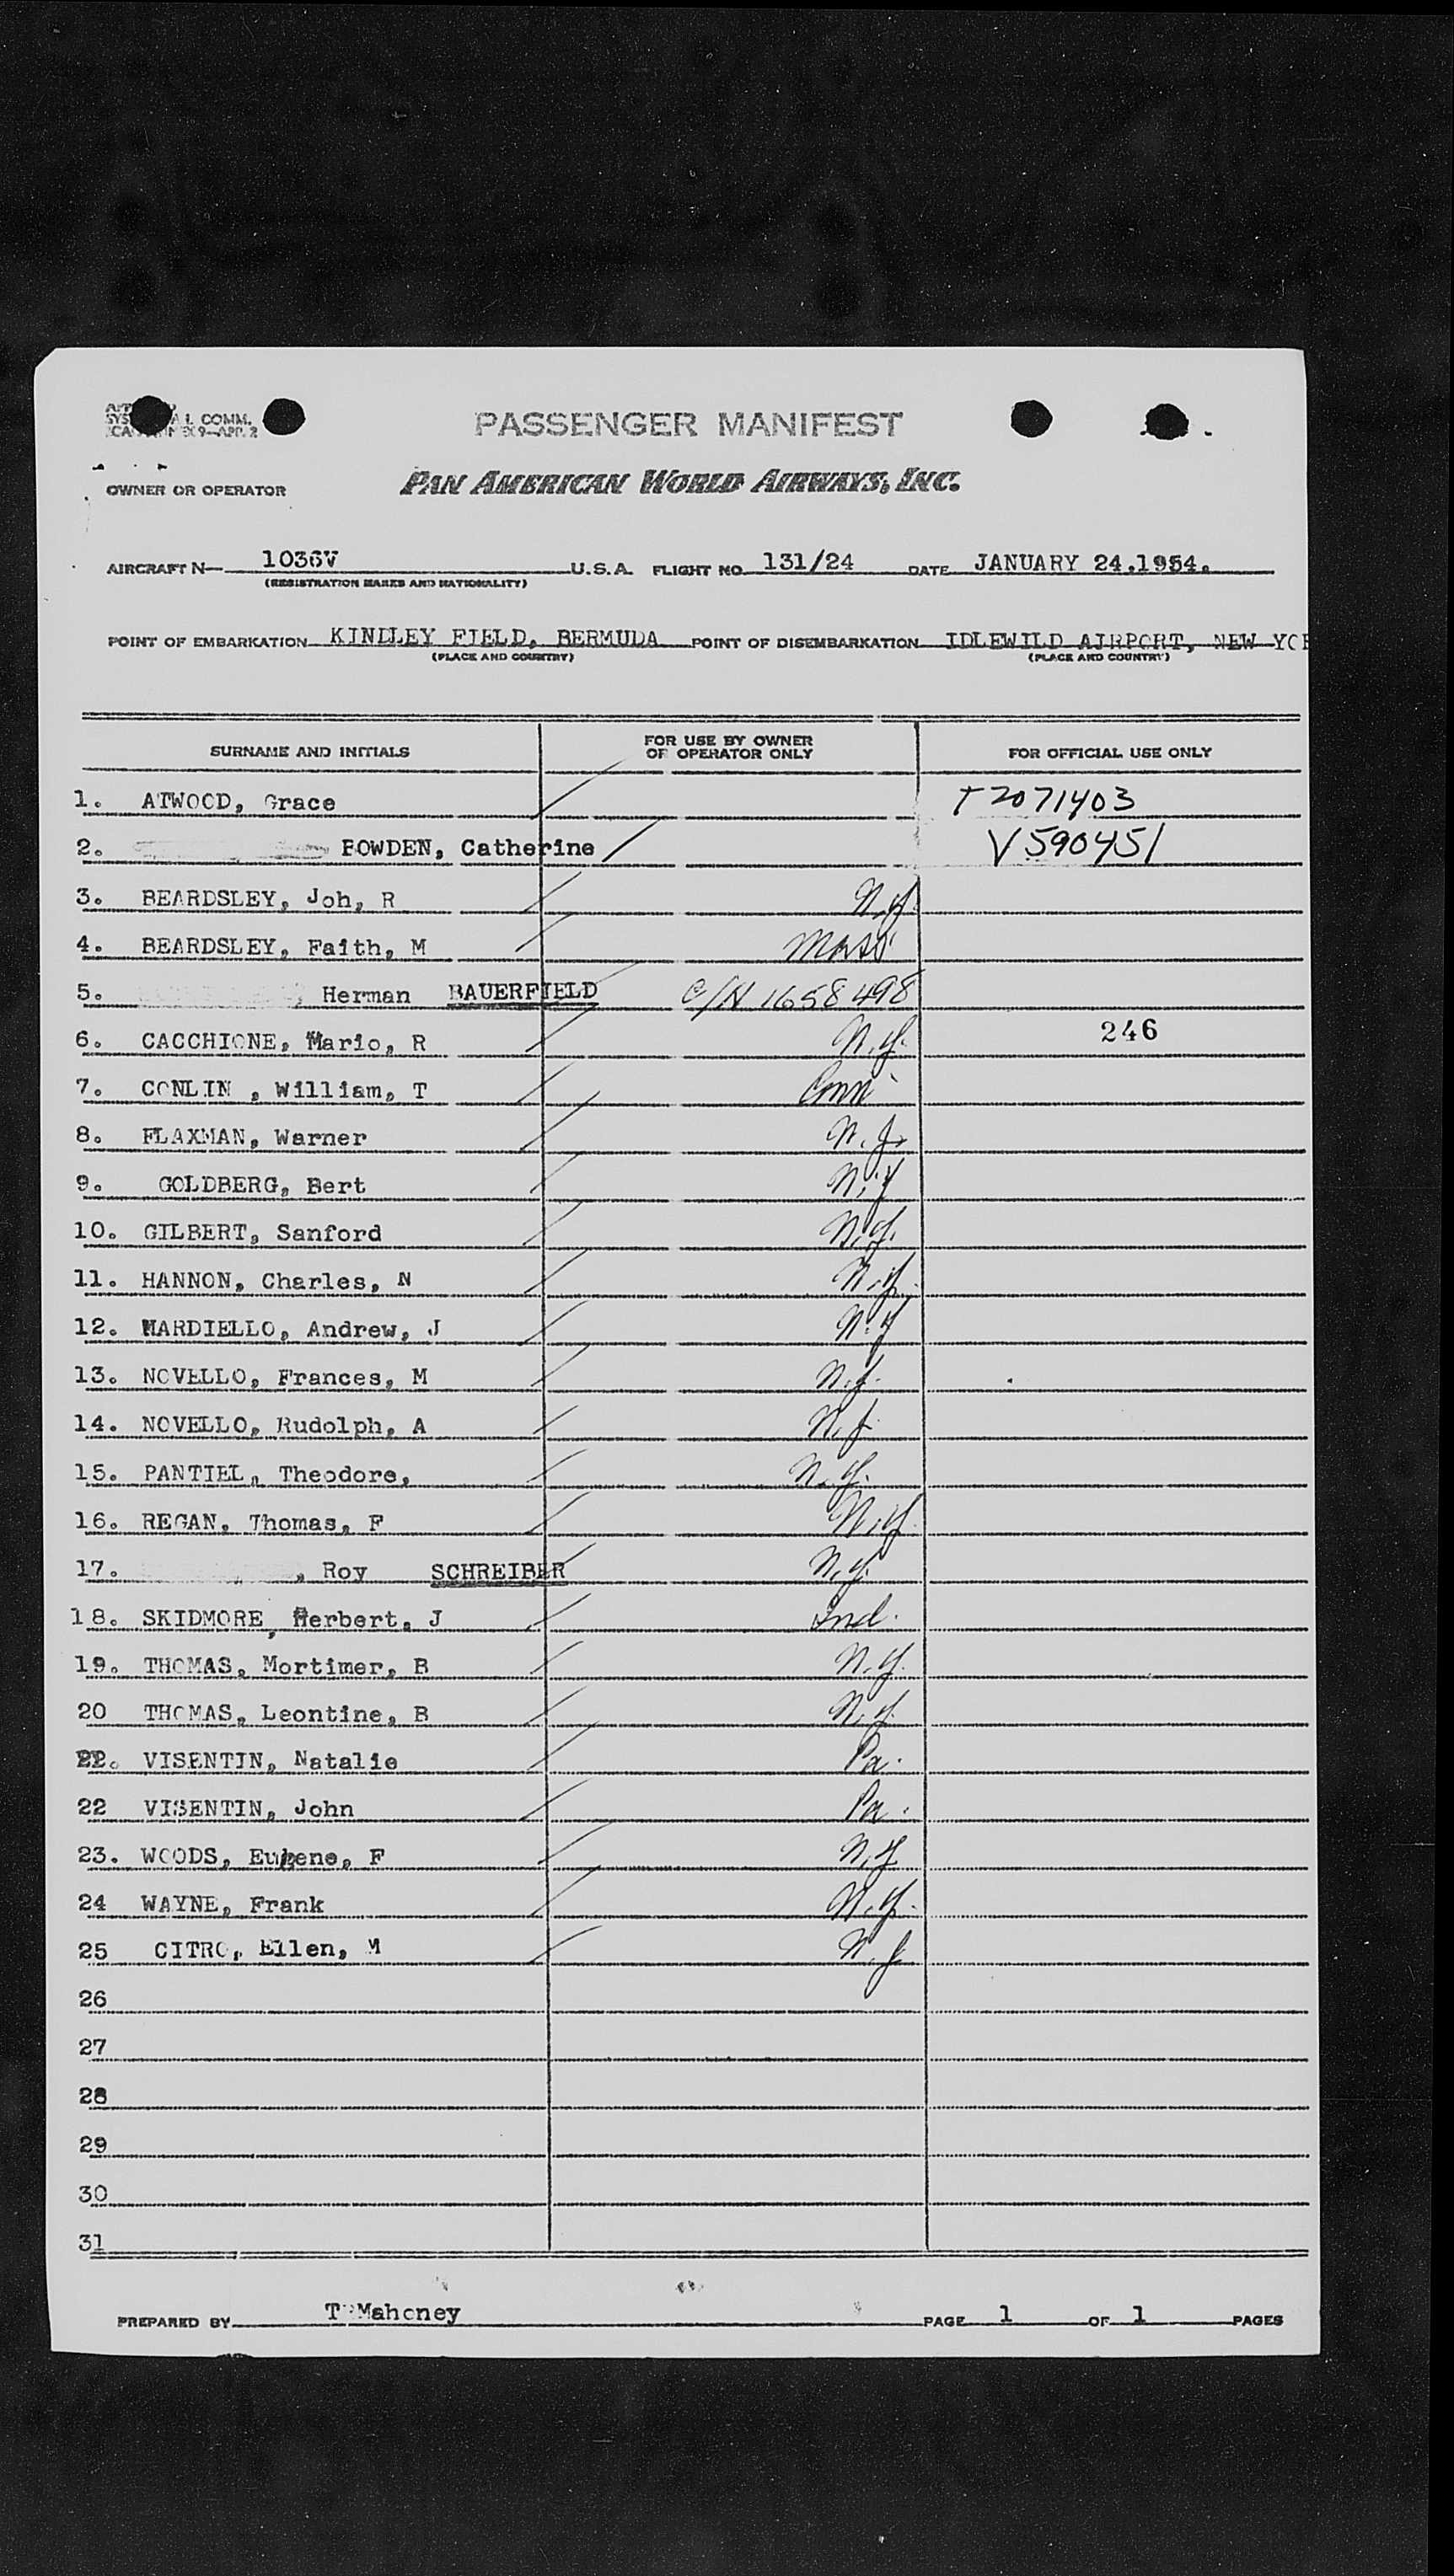 A.I. COMM.
9—APP. 2
PASSENGER MANIFEST
OWNER OR OPERATOR PAN AMERICAN WORLD AIRWAYS, INC.
AIRCRAFT N— 1036V U.S.A. FLIGHT NO. 131/24 DATE JANUARY 24.1954.
(REGISTRATION MARKS AND NATIONALITY)
POINT OF EMBARKATION KINDLEY FIELD, BERMUDA POINT OF DISEMBARKATION IDLEWILD AIRPORT, NEW YOR
(PLACE AND COUNTRY) (PLACE AND COUNTRY)
SURNAME AND INITIALS FOR USE BY OWNER OF OPERATOR ONLY FOR OFFICIAL USE ONLY
1. ATWOOD, Grace T2071403
2. BOWDEN, Catherine V590451
3. BEARDSLEY, Joh, R N.Y.
4. BEARDSLEY, Faith, M Mass
5. , Herman BAUERFIELD C/N 1658498
6. CACCHIONE, Mario, R N.Y. 246
7. CONLIN , William, T Conn
8. FLAXMAN, Warner N.J.
9. GOLDBERG, Bert N.Y
10. GILBERT, Sanford N.Y.
11. HANNON, Charles, N N.Y.
12. MARDIELLO, Andrew, J N.Y
13. NOVELLO, Frances, M N.J.
14. NOVELLO, Rudolph, A N.J.
15. PANTIEL, Theodore, N.Y.
16. REGAN, Thomas, F N.Y.
17. , Roy SCHREIBER N.Y.
18. SKIDMORE, Herbert, J Ind.
19. THOMAS, Mortimer, B N.Y.
20 THOMAS, Leontine, B N.Y.
22. VISENTIN, Natalie Pa.
22 VISENTIN, John Pa.
23. WOODS, Eugene, F N.Y
24 WAYNE, Frank N.Y.
25 CITRO, Ellen, M N.J
26
27
28
29
30
31
PREPARED BY T Mahoney PAGE 1 OF 1 PAGES